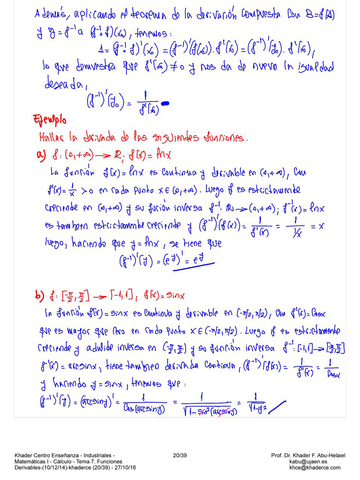 Además, aplicando el teorema de la derivación compuesta con B=f(A)
y g=f⁻¹ a (f⁻¹∘f)(x₀), tenemos:
1=(f⁻¹∘f)'(x₀)=(f⁻¹)'(f(x₀)).f'(x₀)=(f⁻¹)'(y₀).f'(x₀),
lo que demuestra que f'(x₀)≠0 y nos da de nuevo la igualdad
deseada,
(f⁻¹)'(y₀)=1/f'(x₀)
Ejemplo
Hallar la derivada de las siguientes funciones.
a) f:(0,+∞)→ℝ; f(x)=lnx
La función f(x)=lnx es continua y derivable en (0,+∞), con
f'(x)=1/x >0 en cada punto x∈(0,+∞). Luego f es estrictamente
creciente en (0,+∞) y su función inversa f⁻¹:ℝ→(0,+∞); f⁻¹(x)=lnx
es también estrictamente creciente y (f⁻¹)'(f(x))=1/f'(x)=1/(1/x)=x
luego, haciendo que y=lnx, se tiene que
(f⁻¹)'(y)=(e^y)'=e^y
b) f:[-π/2,π/2]→[-1,1], f(x)=sinx
La función f(x)=sinx es continua y derivable en (-π/2,π/2), con f'(x)=cosx
que es mayor que cero en cada punto x∈(-π/2,π/2). Luego f es estrictamente
creciente y admite inversa en (-π/2,π/2) y su función inversa f⁻¹:[-1,1]→[-π/2,π/2]
f⁻¹(x)=arcsinx, tiene también derivada continua, (f⁻¹)'(f(x))=1/f'(x)=1/cosx
y haciendo y=sinx, tenemos que:
(f⁻¹)'(y)=(arcsiny)'=1/cos(arcsiny)=1/√(1-sin²(arcsiny))=1/√(1-y²)
Khader Centro Enseñanza - Industriales -
Matemáticas I - Cálculo - Tema 7. Funciones
Derivables-(10/12/14)-khaderce (20/39) - 27/10/16
20/39
Prof. Dr. Khader F. Abu-Helaiel
kabu@ujaen.es
khce@khaderce.com